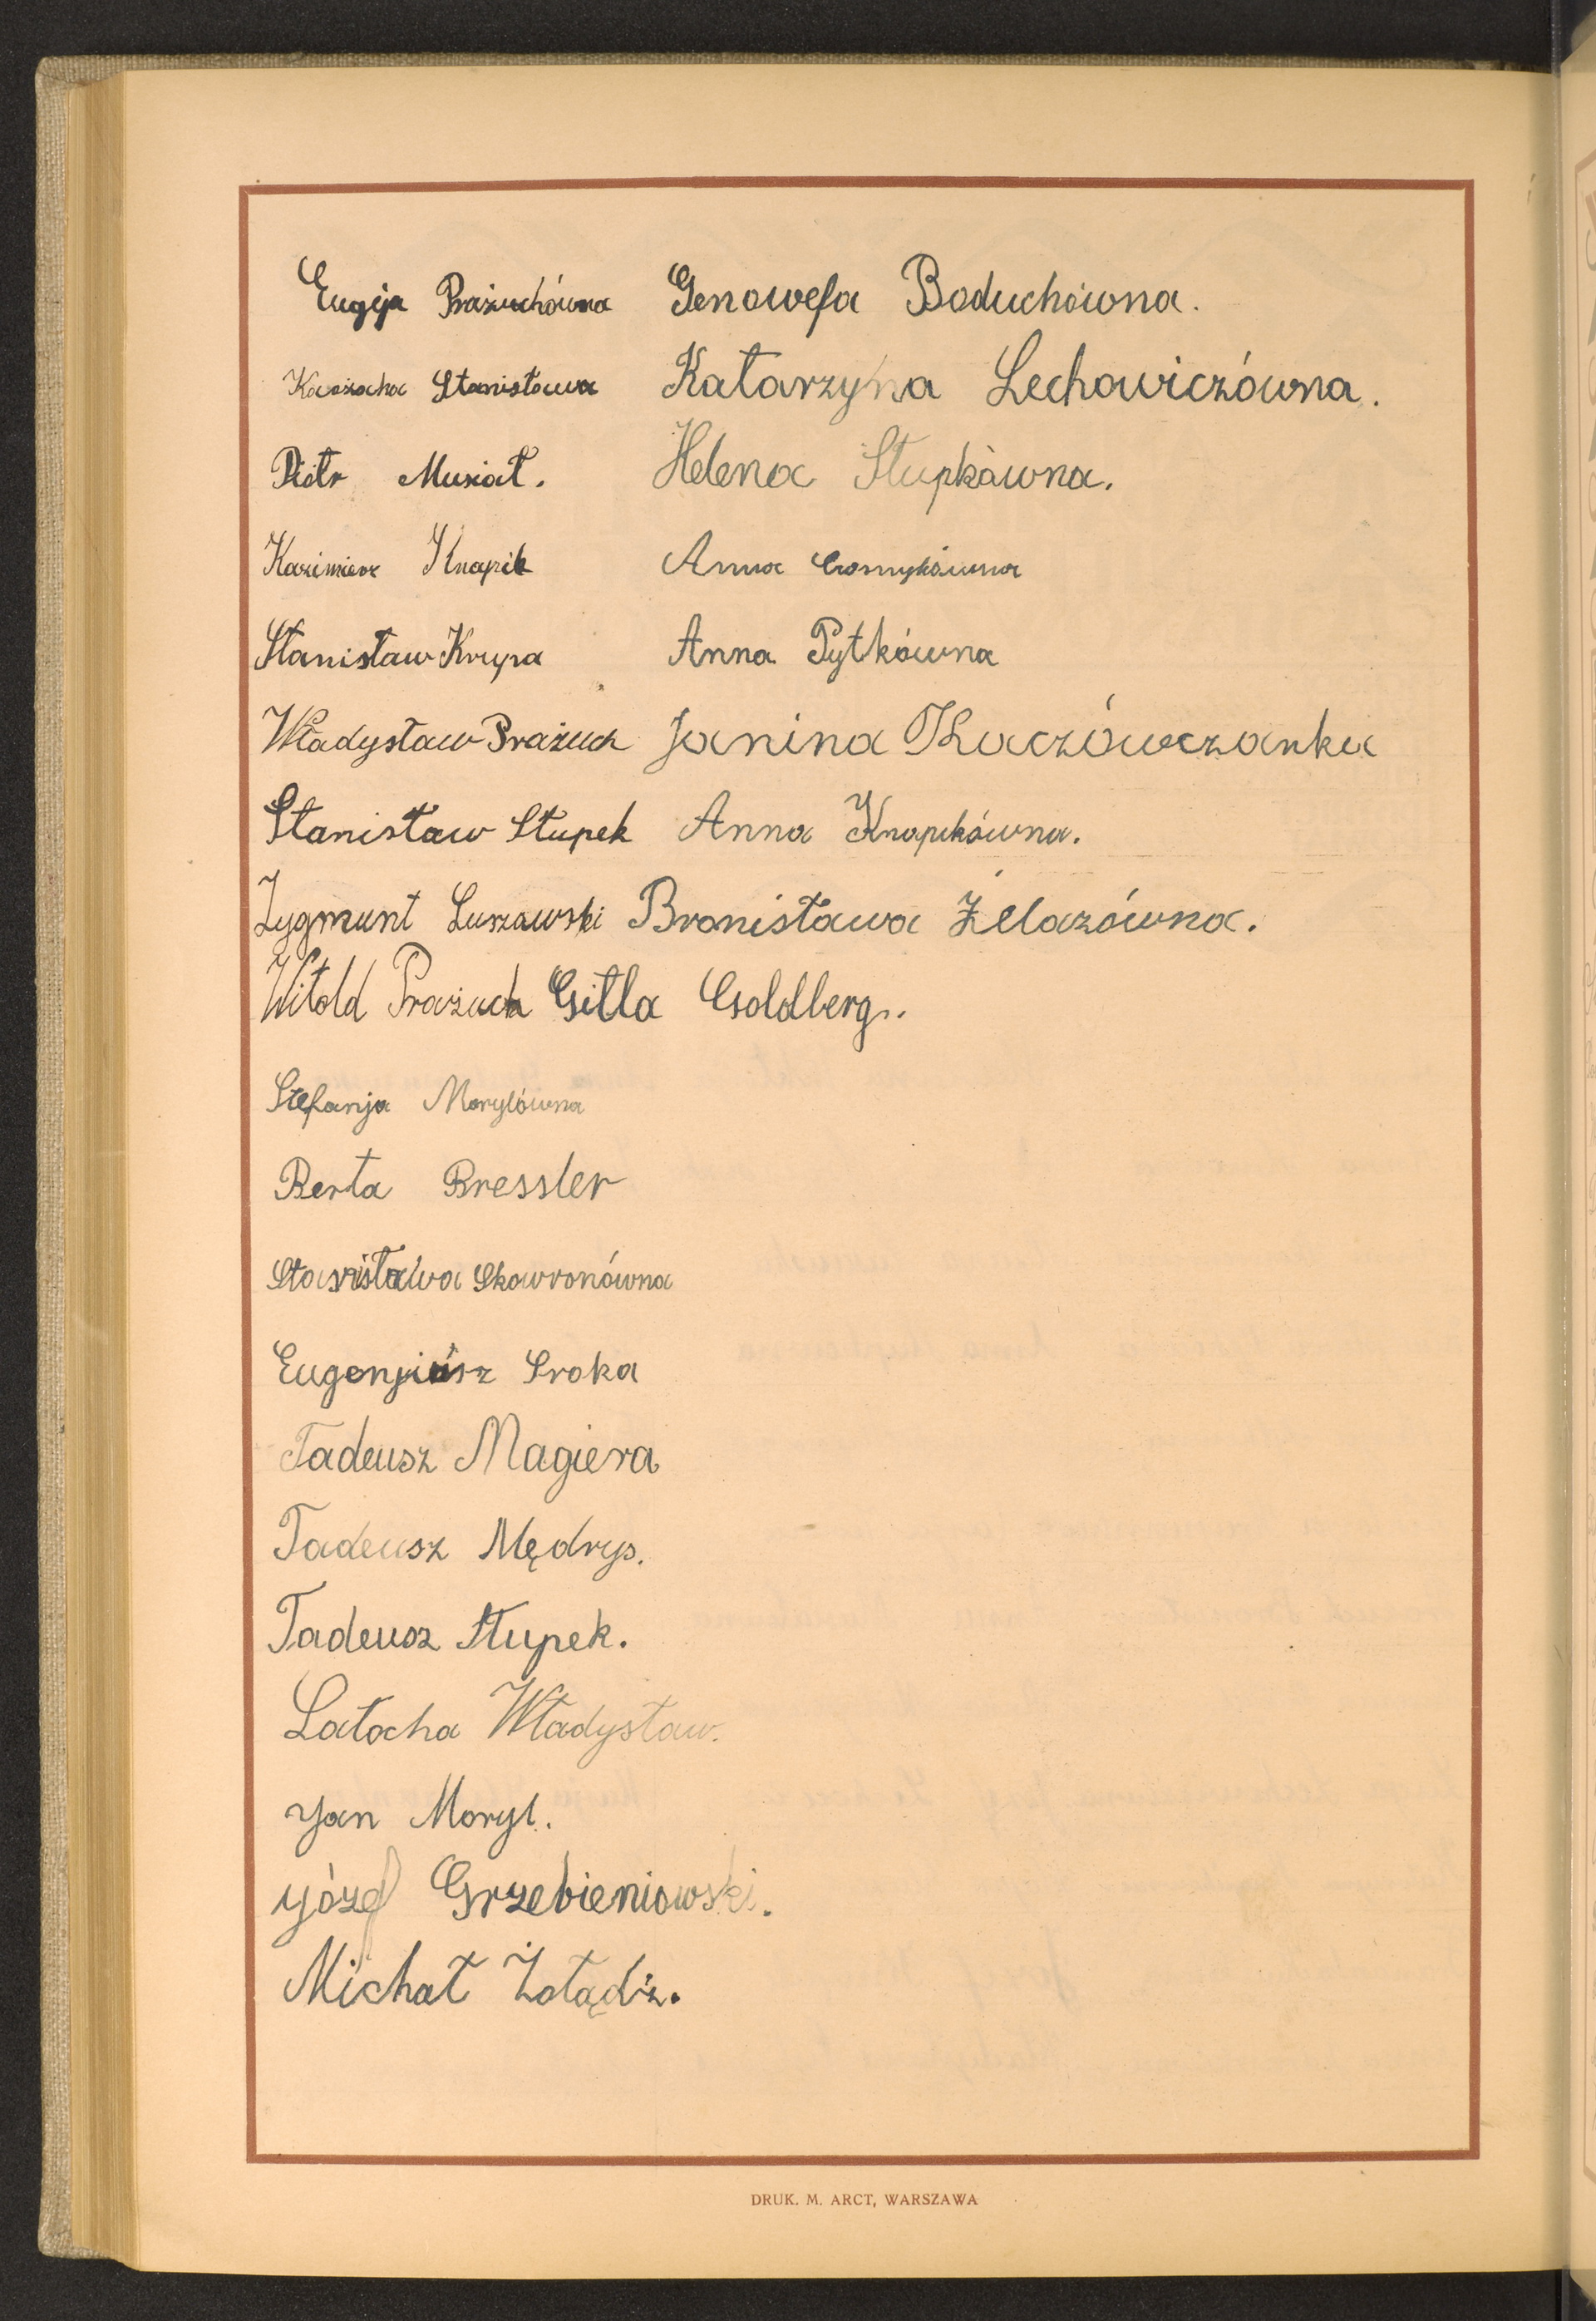 Eugja Prażuchówna Genowefa Boduchówna.
Stanisława Katarzyna Lechowiczówna.
Piotr Musiał. Helena Słupkówna.
Kazimierz Knapik Anna
Stanisław Krupa Anna Pytkówna
Władysław Prażuch Janina Tkaczówczanka
Stanisław Słupek Anna Knapikówna.
Zygmunt Luszawski Bronisława Żelazówna.
Witold Prażuch Gitla Goldberg.
Stefanja Morylówna
Berta Bressler
Stanisława Skawronówna
Eugenjusz Sroka
Tadeusz Magiera
Tadeusz Mędrys.
Tadeusz Słupek.
Latocha Władysław.
Jan Moryl.
Józef Grzebieniowski.
Michał Żołądź.
DRUK. M. ARCT, WARSZAWA